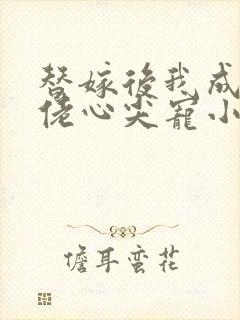 替嫁後我成
佬心尖寵小
儋耳蛮花